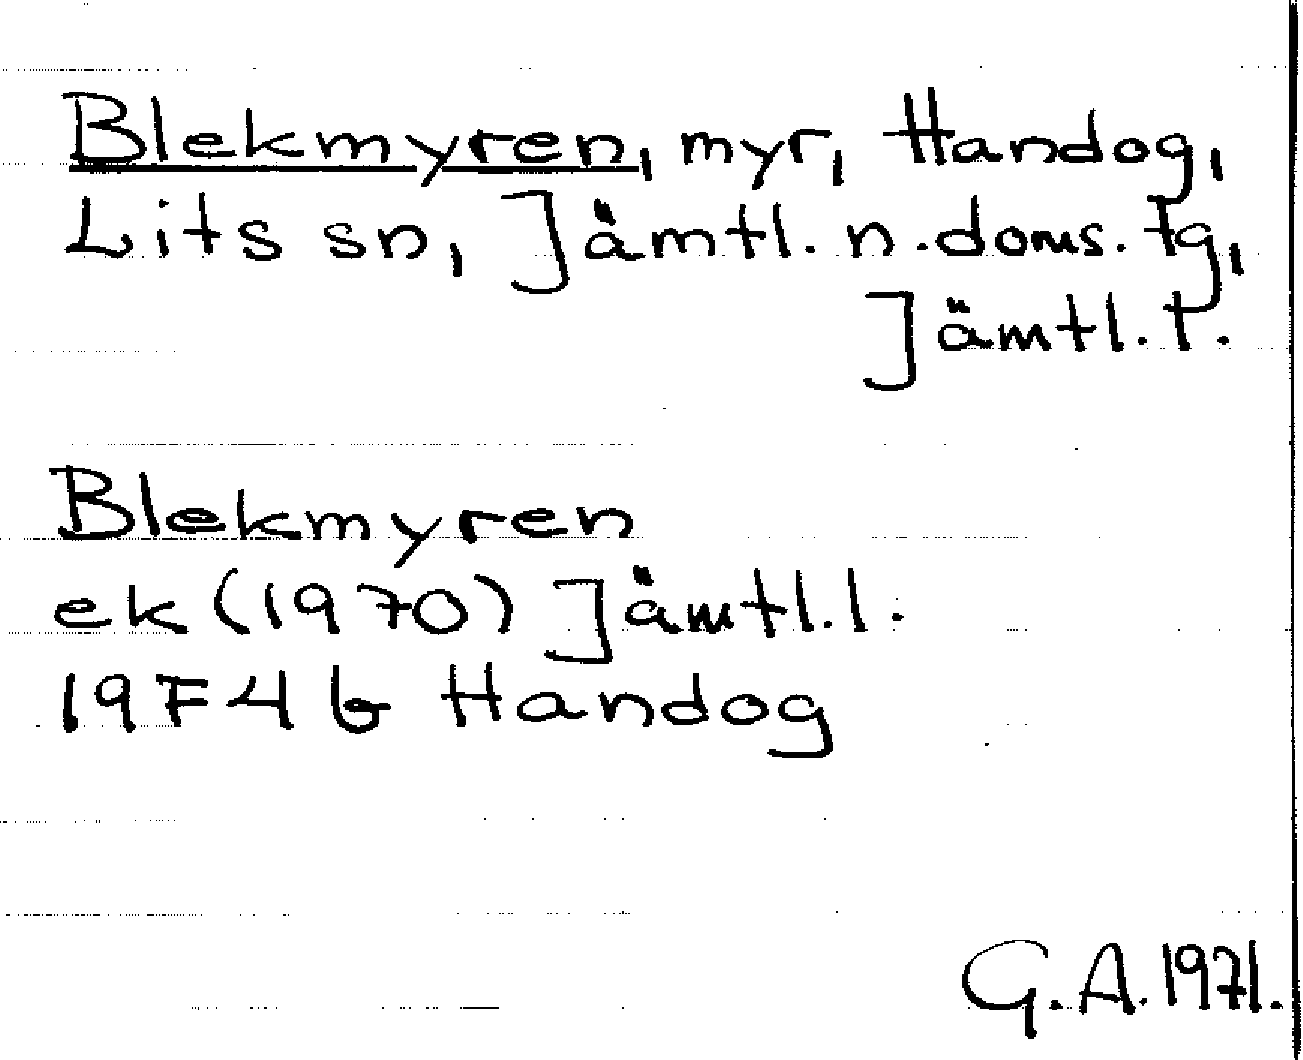 Blekmyren, myr, Handog,
Lits sn, Jämtl. n. doms. tg,
Jämtl. l.
Blekmyren
ek (1970) Jämtl. l.
19F4b Handog
G.A. 1971.